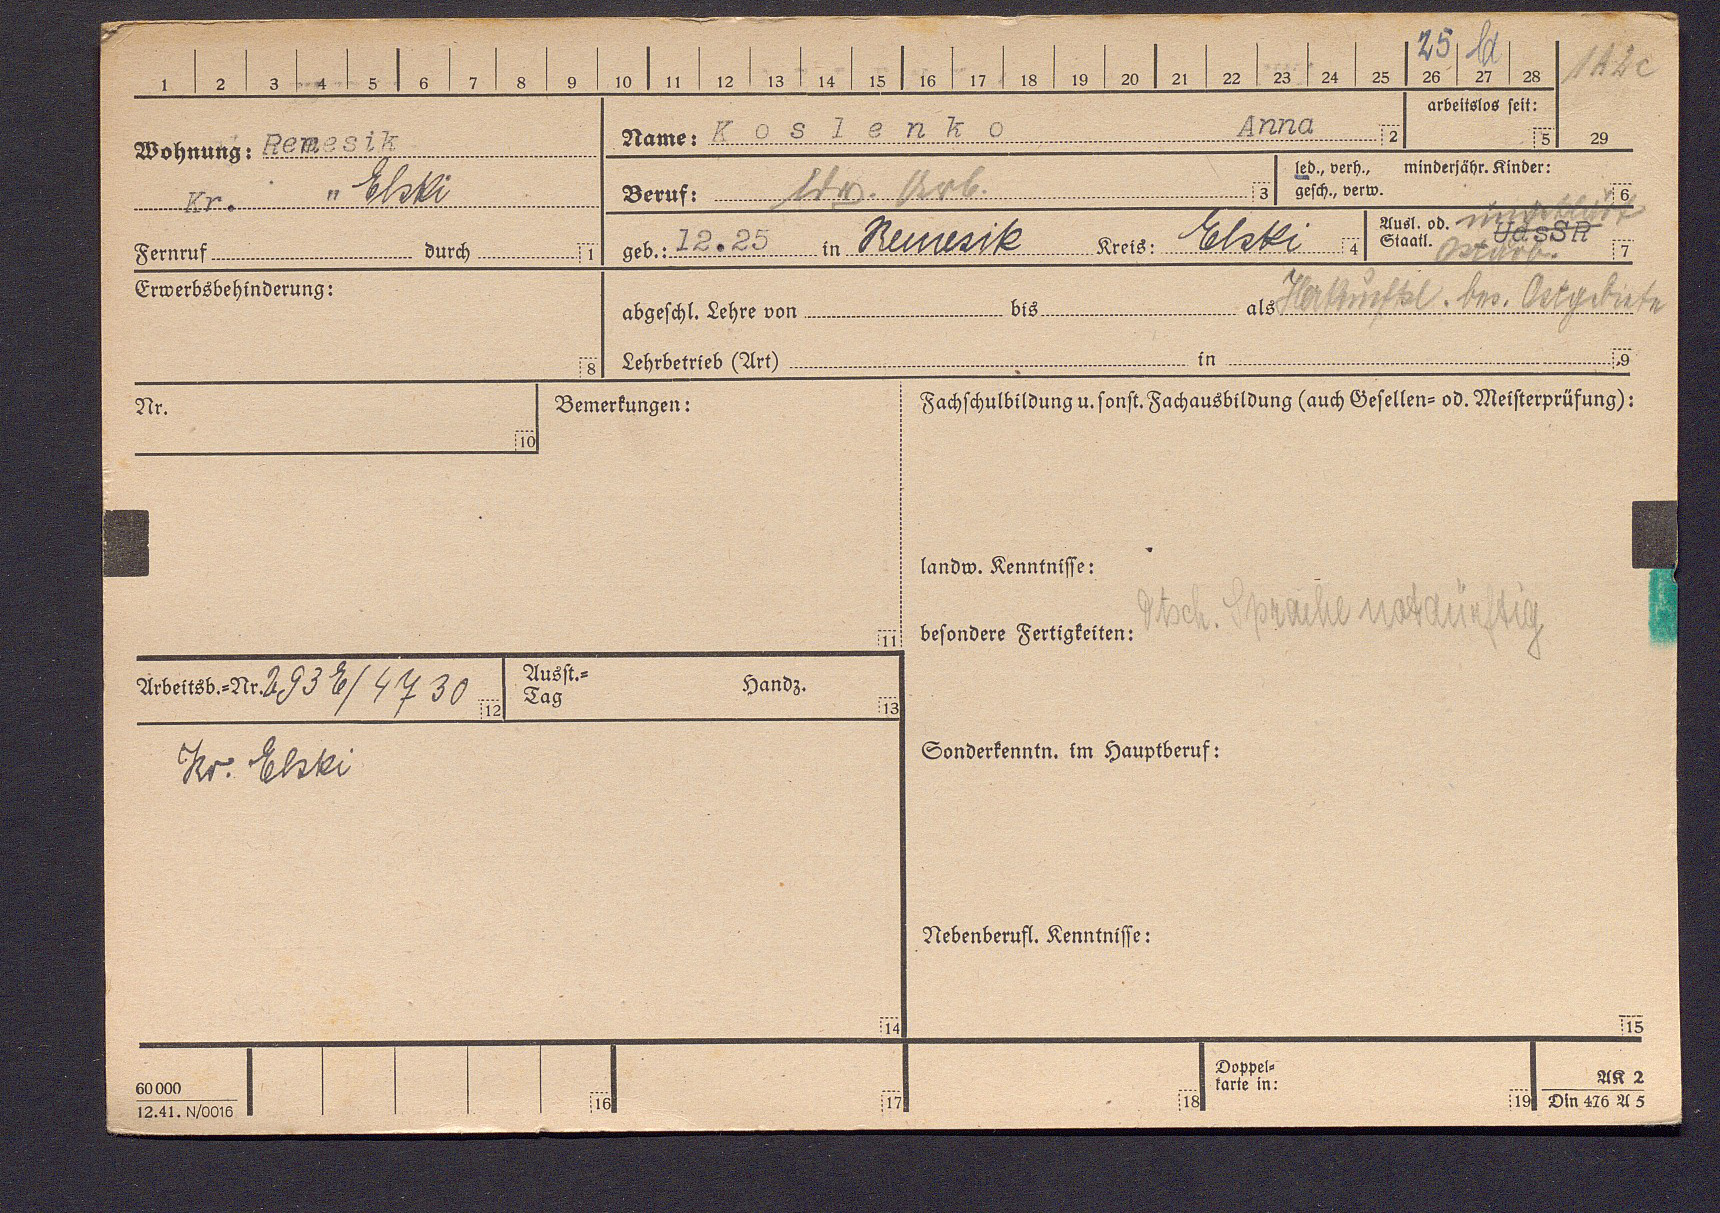 25 ld
1A2c
1 2 3 4 5 6 7 8 9 10 11 12 13 14 15 16 17 18 19 20 21 22 23 24 25 26 27 28
29
arbeitslos seit:
5
Wohnung: Remesik
Kr. " Elski
Name: Koslenko Anna 2
Beruf: ldw. Arb. 3
led., verh., minderjähr. Kinder:
gesch., verw. 6
Fernruf durch 1
geb.: 12.25 in Remesik Kreis: Elski 4
Ausl. od. ungeklärt
Staatl. UdSSR 7
Ostarb.
Erwerbsbehinderung:
8
abgeschl. Lehre von bis als Herkunftsl. bes. Ostgebiete
Lehrbetrieb (Art) in 9
Nr.
10
Bemerkungen:
11
Fachschulbildung u. sonst. Fachausbildung (auch Gesellen= od. Meisterprüfung):
landw. Kenntnisse:
besondere Fertigkeiten: dtsch. Sprache notdürftig
Arbeitsb.=Nr. 293E/4730 12
Ausst.=
Tag
Handz.
13
Kr. Elski
14
Sonderkenntn. im Hauptberuf:
Nebenberufl. Kenntnisse:
15
60 000
12.41. N/0016
16
17
18
Doppel=
karte in:
19
AK 2
Din 476 A 5